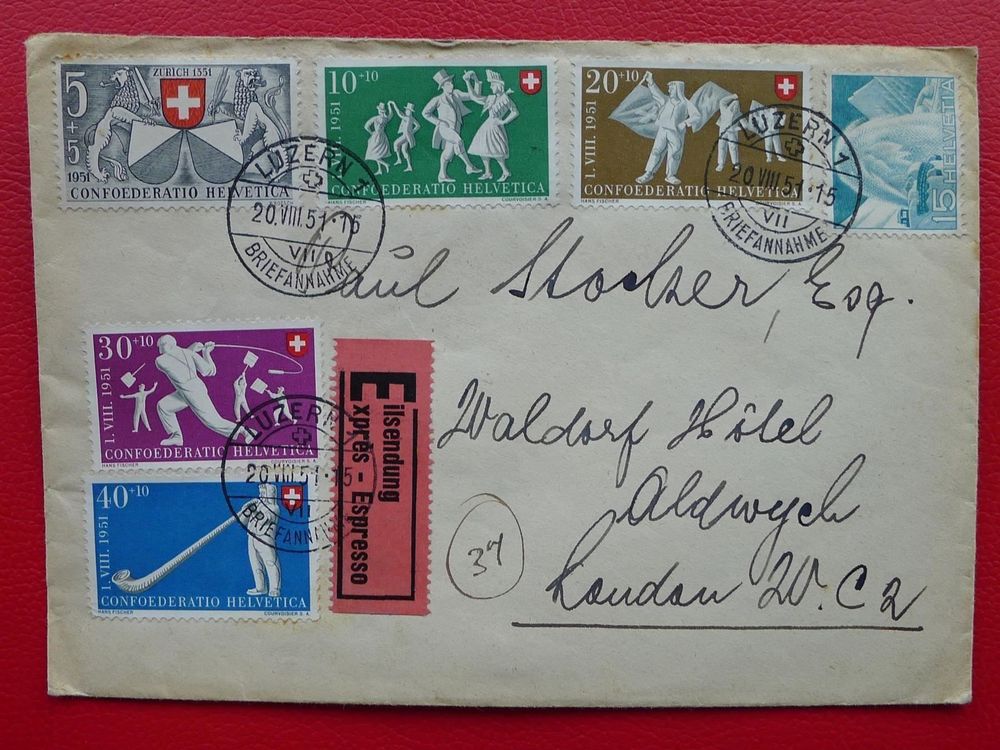 5+5
ZÜRICH 1351
1951
CONFOEDERATIO HELVETICA
10+10
1. VIII. 1951
CONFOEDERATIO HELVETICA
HANS FISCHER
COURVOISIER S.A.
20+10
1. VIII. 1951
CONFOEDERATIO HELVETICA
HANS FISCHER
15 HELVETIA
LUZERN 1
20.VIII.51·15
VII
BRIEFANNAHME
LUZERN 1
20.VIII.51·15
VII
BRIEFANNAHME
Paul Stocker, Esq.
Waldorf Hôtel
Aldwych
London W.C 2
30+10
1. VIII. 1951
CONFOEDERATIO HELVETICA
HANS FISCHER
COURVOISIER S.A.
LUZERN 1
20.VIII.51·15
BRIEFANNAHME
40+10
1. VIII. 1951
CONFOEDERATIO HELVETICA
HANS FISCHER
COURVOISIER S.A.
Eilsendung
Exprès - Espresso
37